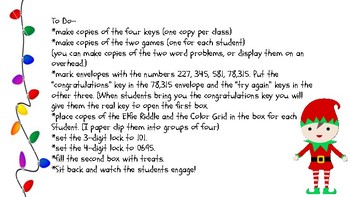 To Do-
*make copies of the four keys (one copy per class)
*make copies of the two games (one for each student)
(you can make copies of the two word problems, or display them on an
overhead.)
*mark envelopes with the numbers 227, 345, 581, 78,315. Put the
"congratulations" key in the 78,315 envelope and the "try again" keys in the
other envelopes. (When students bring you the congratulations key you will
give them the real key to open the first box.
*place copies of the Elfie Riddle and the Color Grid in the box for each
Student. (I paper clip them into groups of four)
*set the 3-digit lock to 101.
*set the 4-digit lock to 0695.
*fill the second box with treats.
*Sit back and watch the students engage!